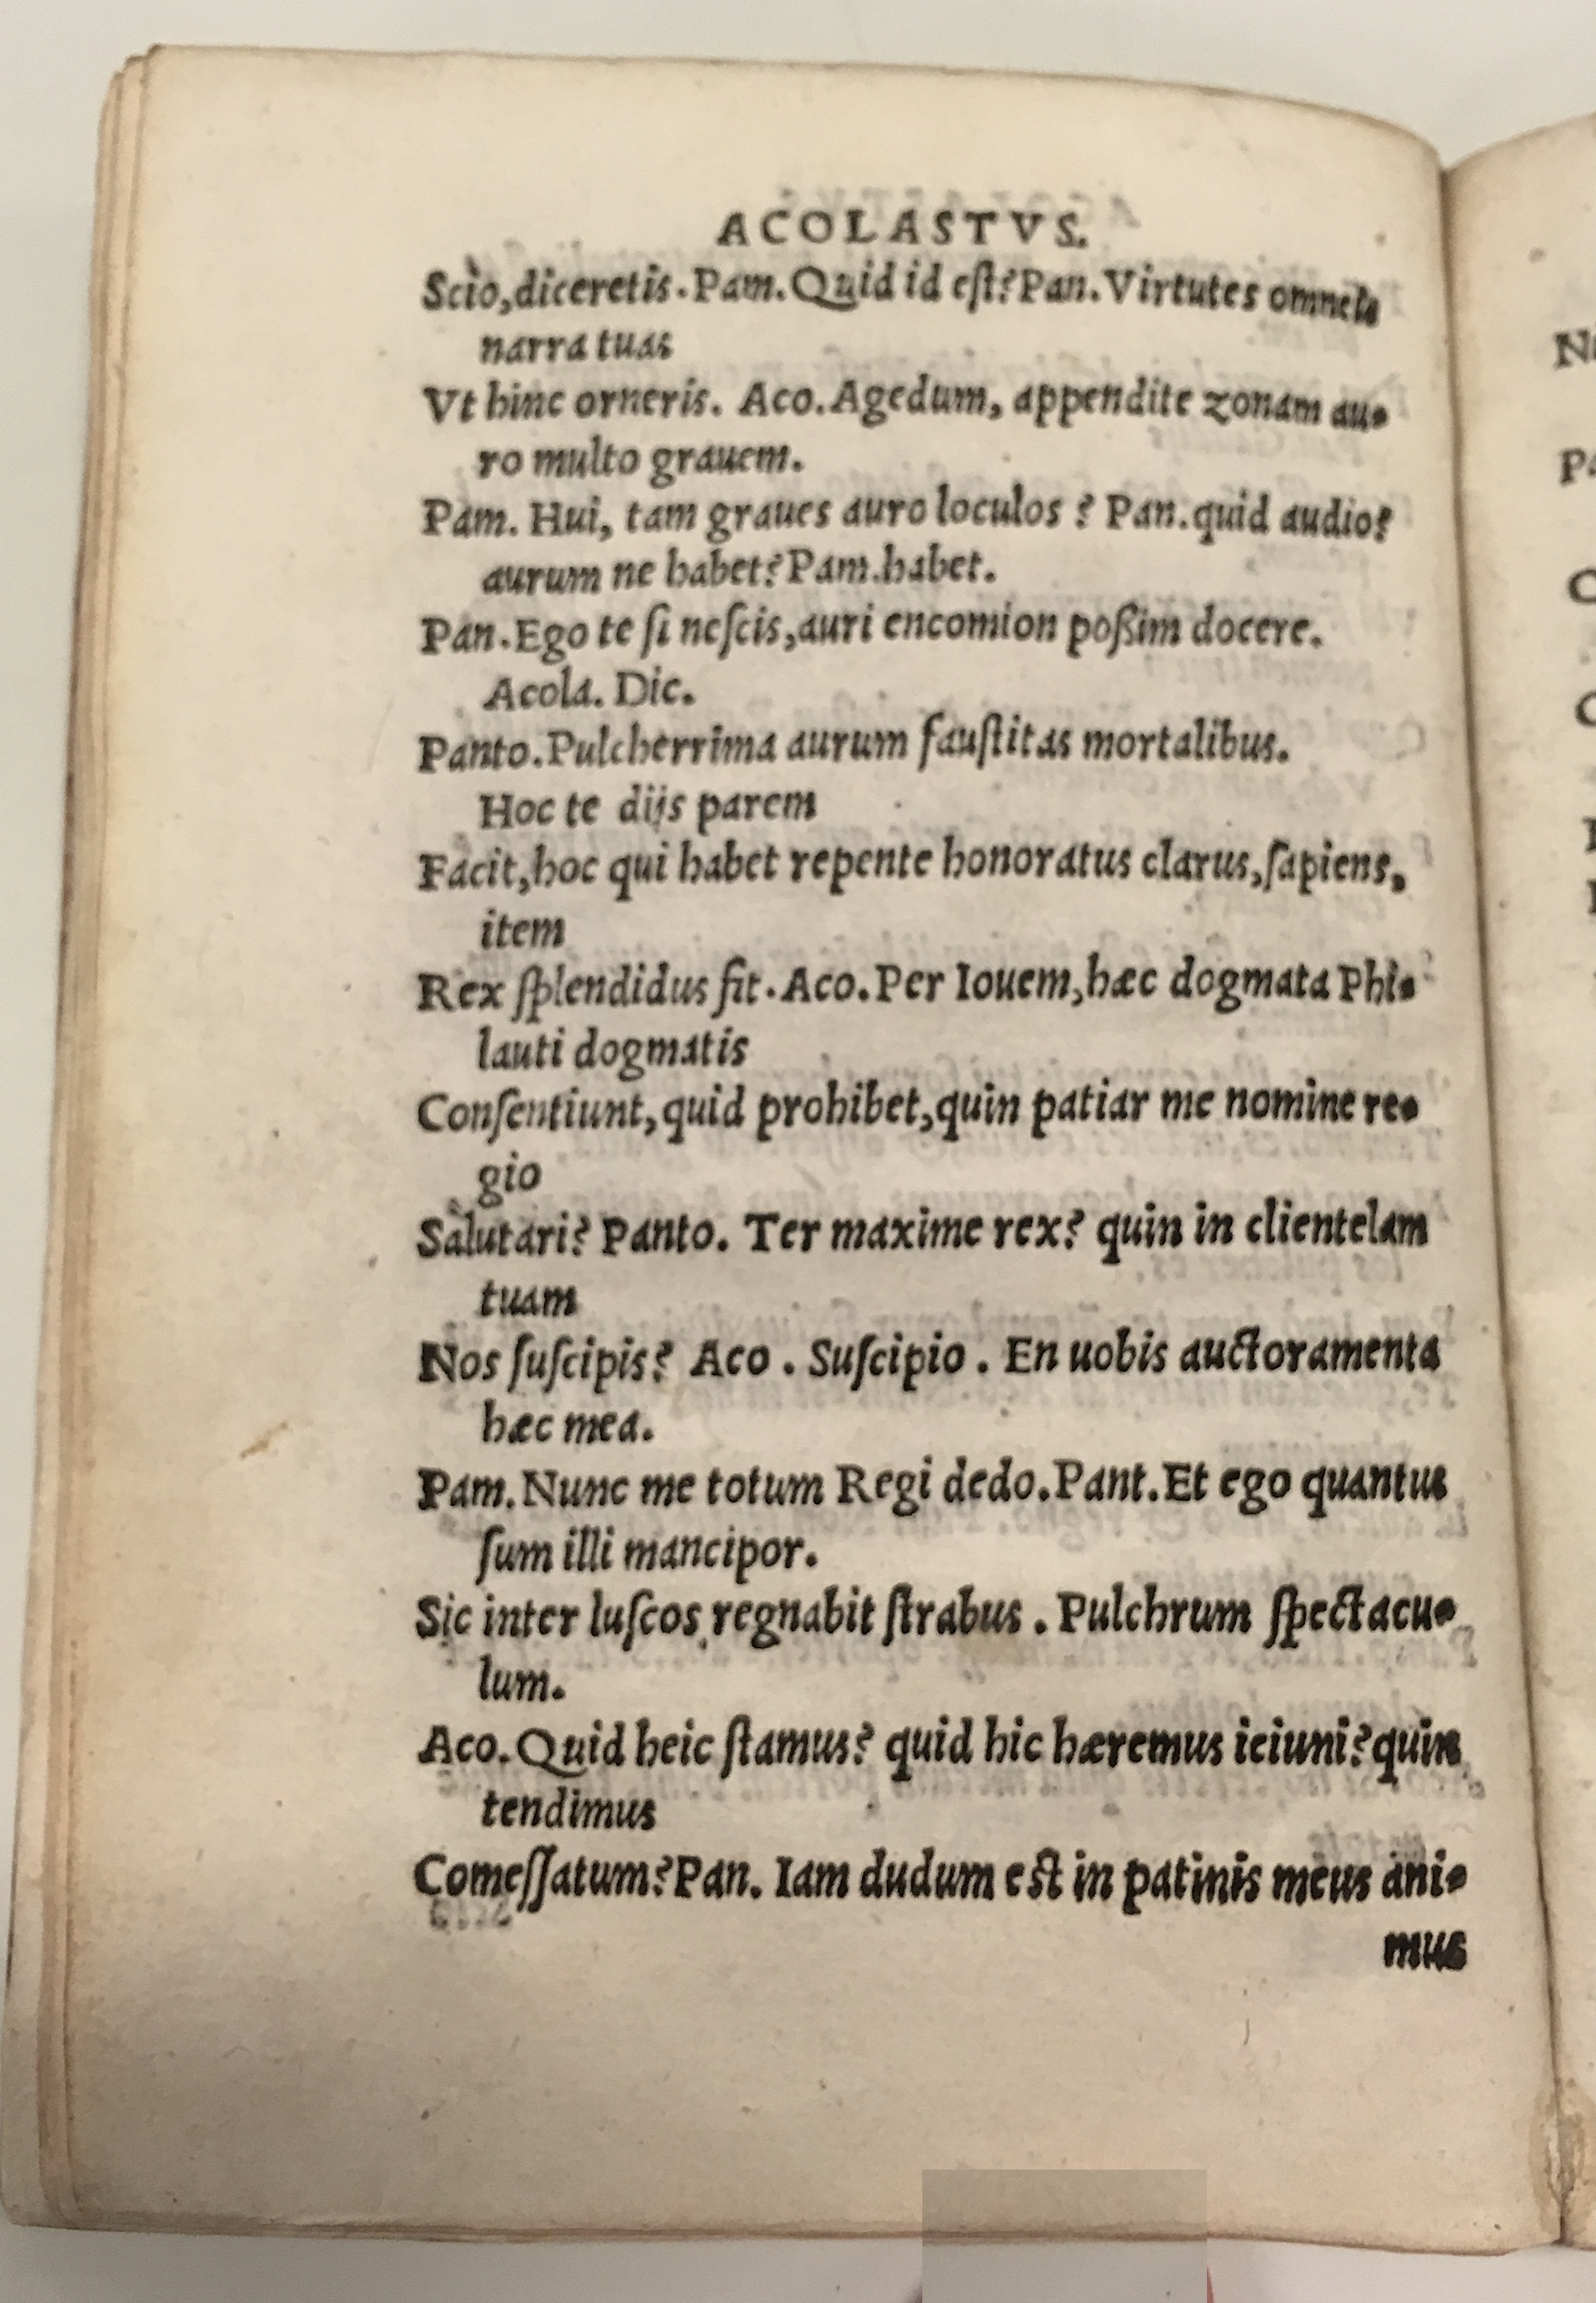 ACOLASTVS.
Scio,diceretis.Pam.Quid id eſt?Pan.Virtutes omneis
narra tuas
Vt hinc orneris. Aco.Agedum, appendite zonam au-
ro multo grauem.
Pam. Hui, tam graues auro loculos ? Pan.quid audio?
aurum ne habet?Pam.habet.
Pan.Ego te ſi neſcis,auri encomion poßim docere.
Acola. Dic.
Panto.Pulcherrima aurum fauſtitas mortalibus.
Hoc te diis parem
Facit,hoc qui habet repente honoratus clarus,ſapiens,
item
Rex ſplendidus fit.Aco.Per Iouem,hæc dogmata Phi-
lauti dogmatis
Conſentiunt,quid prohibet,quin patiar me nomine re-
gio
Salutari? Panto. Ter maxime rex? quin in clientelam
tuam
Nos ſuſcipis? Aco . Suſcipio . En uobis auctoramenta
hæc mea.
Pam.Nunc me totum Regi dedo.Pant.Et ego quantus
ſum illi mancipor.
Sic inter luſcos regnabit ſtrabus . Pulchrum ſpectacu-
lum.
Aco.Quid heic ſtamus? quid hic hæremus ieiuni?quin
tendimus
Comeſſatum?Pan. Iam dudum eſt in patinis meus ani-
mus
N
Pa
C
C